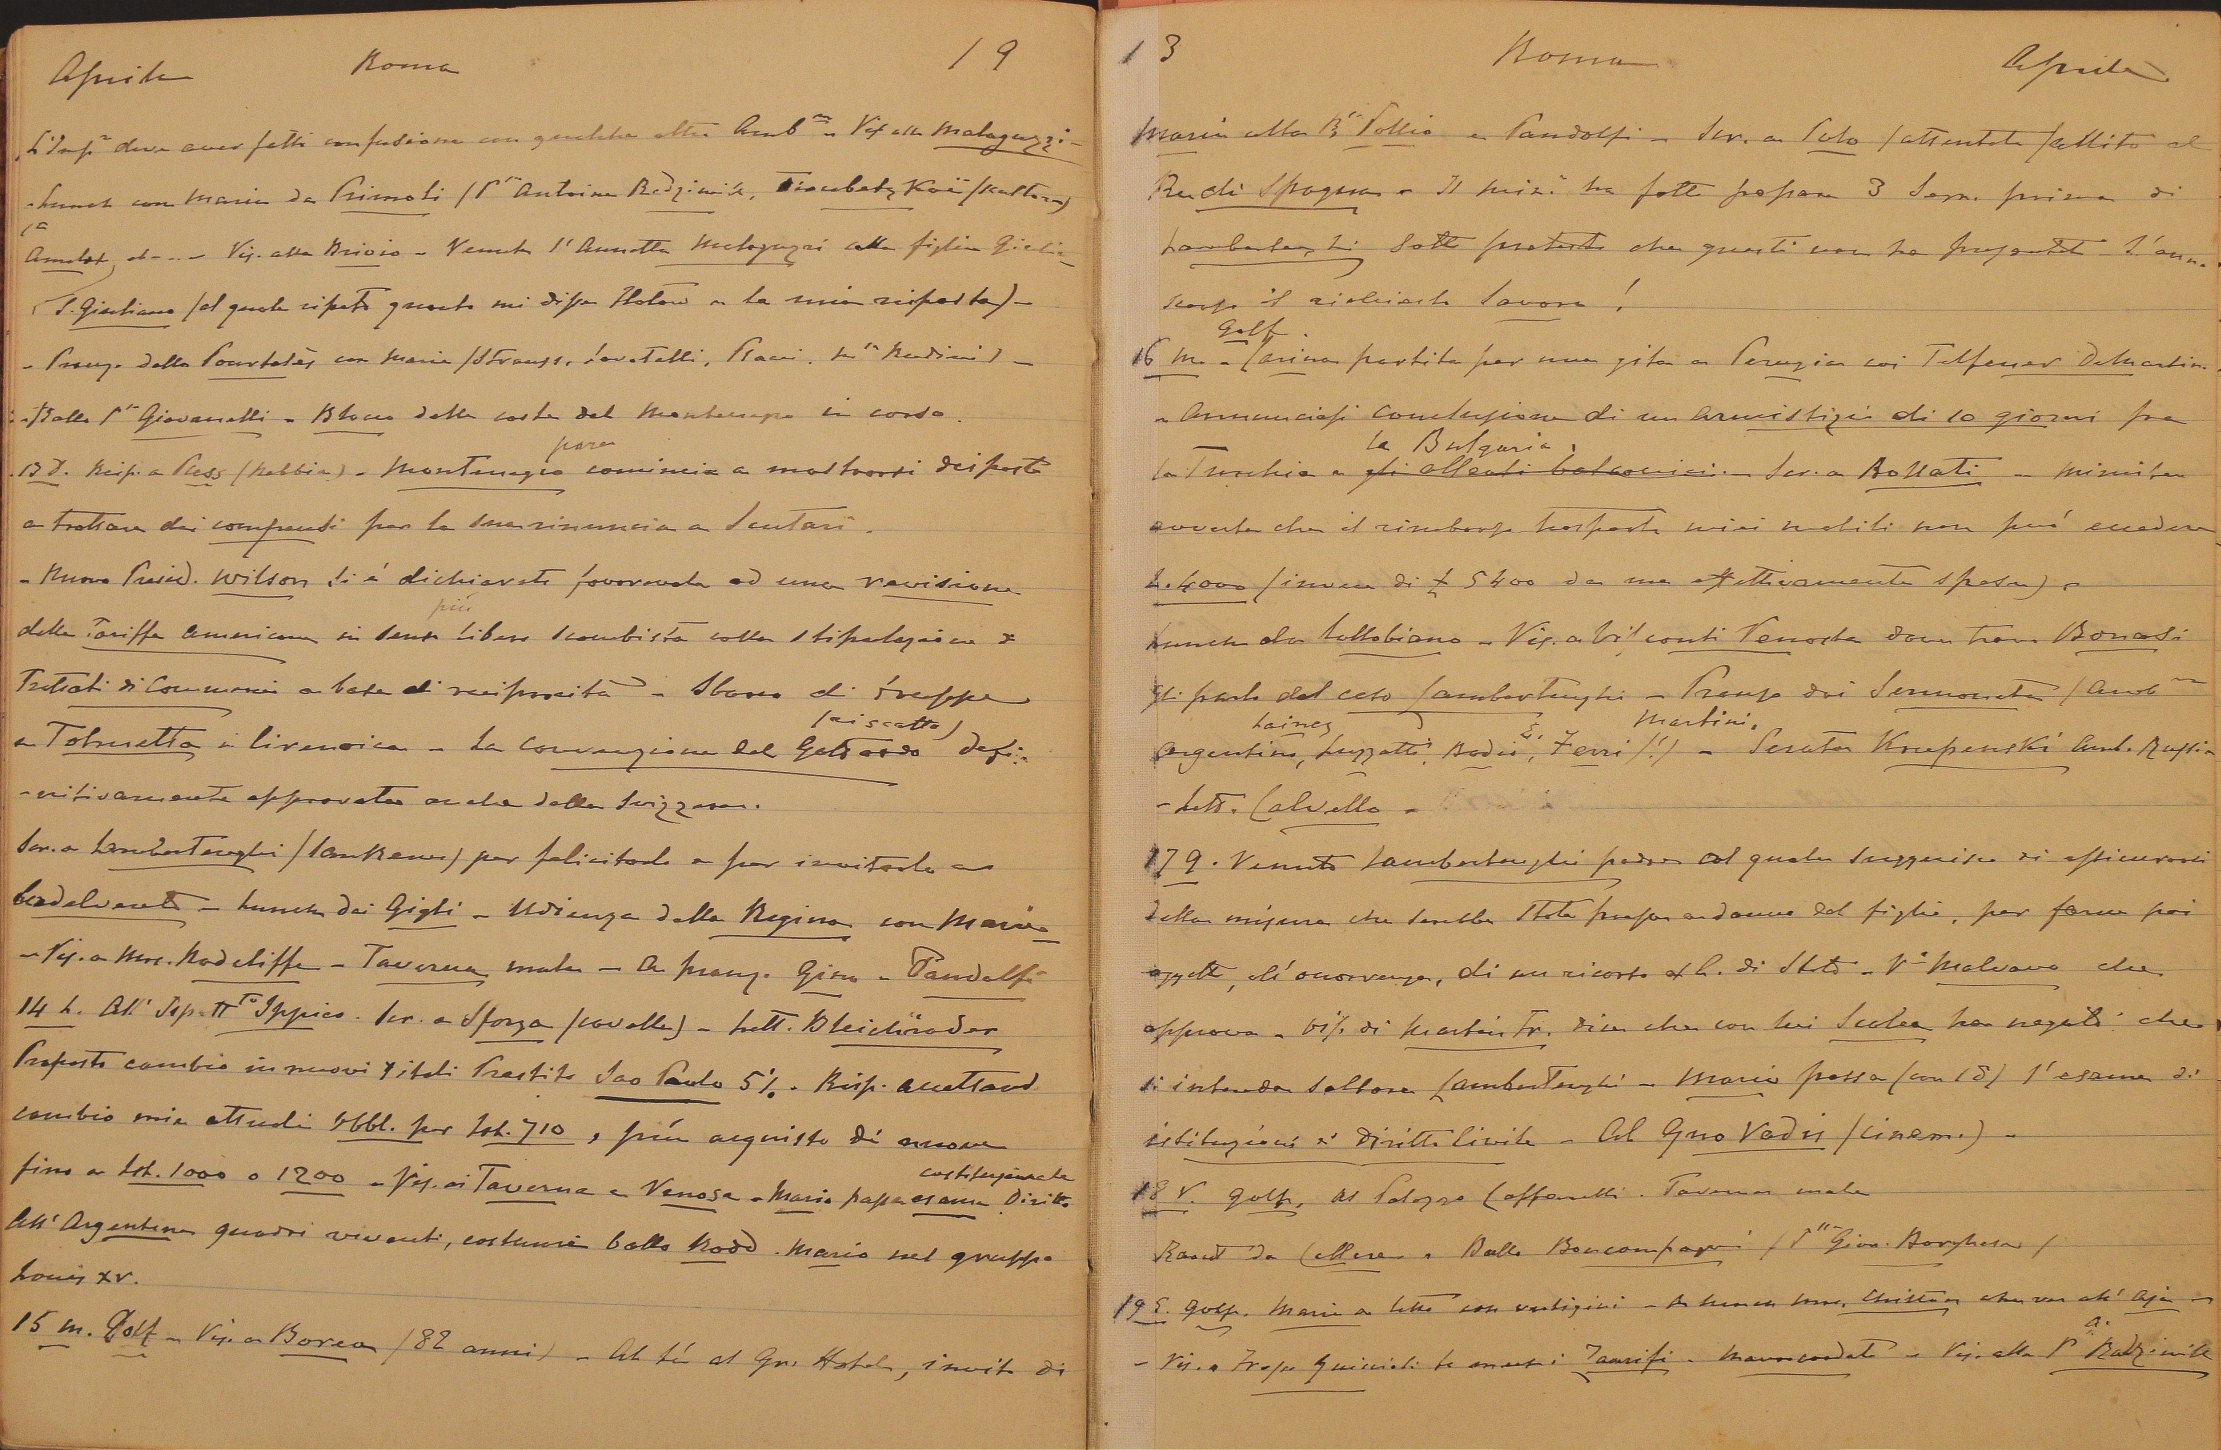 Aprile Roma 19
deve aver fatto confusione con qualche altro Amb.re - Vis. alla Malaguzzi -
- Lunch con Maria da Primoli (P.ssa Antoine Radziwill, Troubetzkoi (scultore)
- Vis. alla Brioio - Venuta l'Annetta Malaguzzi colla figlia
S. Giuliano (al quale ripeto quanto mi disse e la mia risposta) -
- Pranzo dalla Pourtalès con Maria (Strauss, Lovatelli, Rudinì) -
- Ballo P.ssa Giovanelli - Blocco della costa del Montenegro in corso.
13 D. Risp. a - Montenegro pare comincia a mostrarsi disposto
a trattare dei compensi per la sua rinuncia a Scutari.
- Nuovo Presid. Wilson si è dichiarato favorevole ad una revisione
della Tariffa americana in senso più libero scambista colla stipulazione di
Trattati di Commercio a base di reciprocità - Sbarco di truppe
a Tolmetta in Cirenaica - La convenzione del Gottardo (riscatto) defi-
-nitivamente approvata anche dalla Svizzera.
Scr. a Lambertenghi per felicitarlo e per invitarlo a
- Lunch dai Gigli - Udienza della Regina con Maria
- Vis. a Mrs. Radcliffe - Taverna male - A pranzo Gino - Pandolfi
14 L. All' Ippico. Scr. a Sforza (cavallo) - Lett. Bleichröder
Proposto cambio in nuovi titoli Prestito Sao Paulo 5%. Risp. accettand
cambio mie attuali obbl. per Lst. 710, più acquisto di nuove
fino a Lst. 1000 o 1200 - Vis. ai Taverna e Venosa - Maria passa esame Diritto costituzionale
All'Argentina quadri viventi, costumi ballo Rodd. Maria nel gruppo
Louis XV.
15 m. Golf - Vis. a Borea (82 anni) - Al tè al Gr. Hotel, invito di
13 Roma Aprile
Maria alla Pollio e Pandolfi - Scr. a Polo (attentato fallito al
Re di Spagna - Il ha fatto passare 3 Segr. prima di
Lambertenghi sotto pretesto che questi non ha presentato l'anno
scorso il richiesto lavoro!
16 m. - Golf. Carina partita per una gita a Perugia coi Telfener DeMartino
- Annunciasi conclusione di un armistizio di 10 giorni fra
la Turchia e gli alleati balcanici la Bulgaria. - Scr. a Bollati - Ministero
avverte che il rimborso trasporto miei mobili non può eccedere
L. 4000 (invece di £ 5400 da me effettivamente spese) -
Lunch da Collobiano - Vis. a Visconti Venosta dove trovo Bonasi
Gli parlo del caso Lambertenghi - Pranzo dai Sermoneta (Amb.re
Argentino, Lainez, Luzzatti, Bodio, E. Ferri (!) Martini. - Serata Krupenski Amb. Russia
- Lett. Calvello -
17 g. Venuto Lambertenghi padre col quale suggerisco di assicurarsi
della misura che sarebbe stata presa a danno del figlio, per farne poi
oggetto, all'occorrenza, di un ricorso al C. di Stato - V.o Malvano che
approva - Vis. di Martin Fr. dice che con lui Scalea ha negato che
si intenda saltare Lambertenghi - Maria passa (con 18) l'esame di
istituzioni di diritto Civile - Al Quo Vadis (cinem.) -
18 V. Golf, al Palazzo Caffarelli. Taverna male
Raout da Cellere - Ballo Boncompagni (P.ssa Giov. Borghese)
19 S. Golf. Maria a letto con vertigini - A lunch che va all'Aja -
- Vis. a - Mavrocordato - Vis. alla P.ssa A. Radziwill